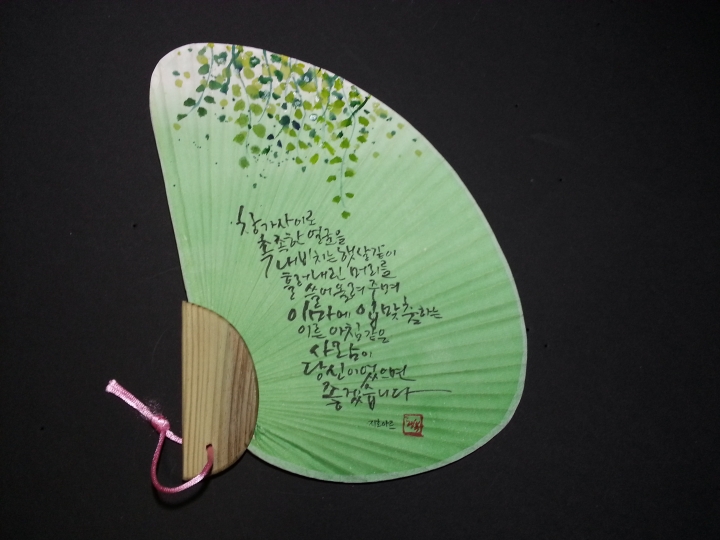 창가사이로
촉촉한 얼굴을
내비치는 햇살같이
흘러내린 머리를
쓸어올려주며
이마에 입맞춤하는
이른 아침같은
사람이
당신이었으면
좋겠습니다